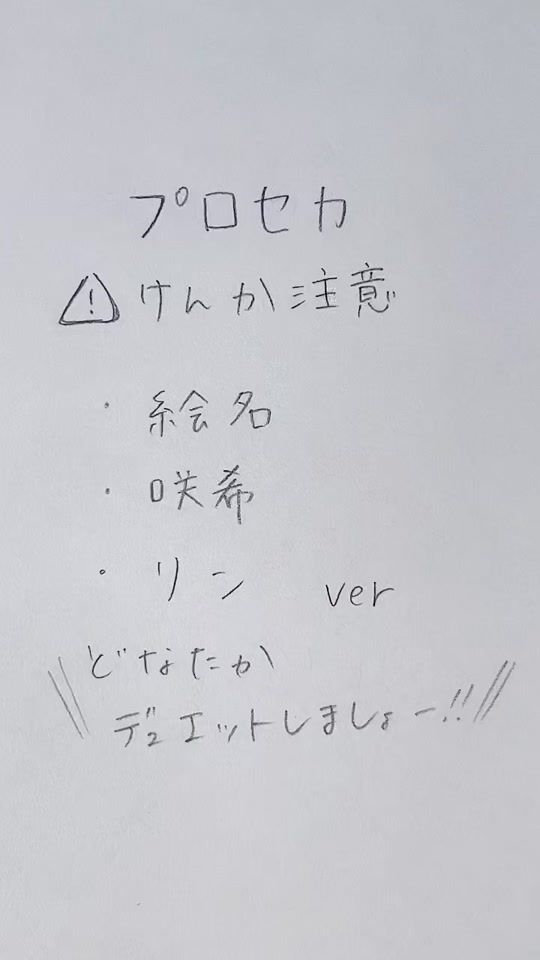 プロセカ
⚠けんか注意
・絵名
・咲希
・リン ver
\\どなたか
デュエットしましょー!!//